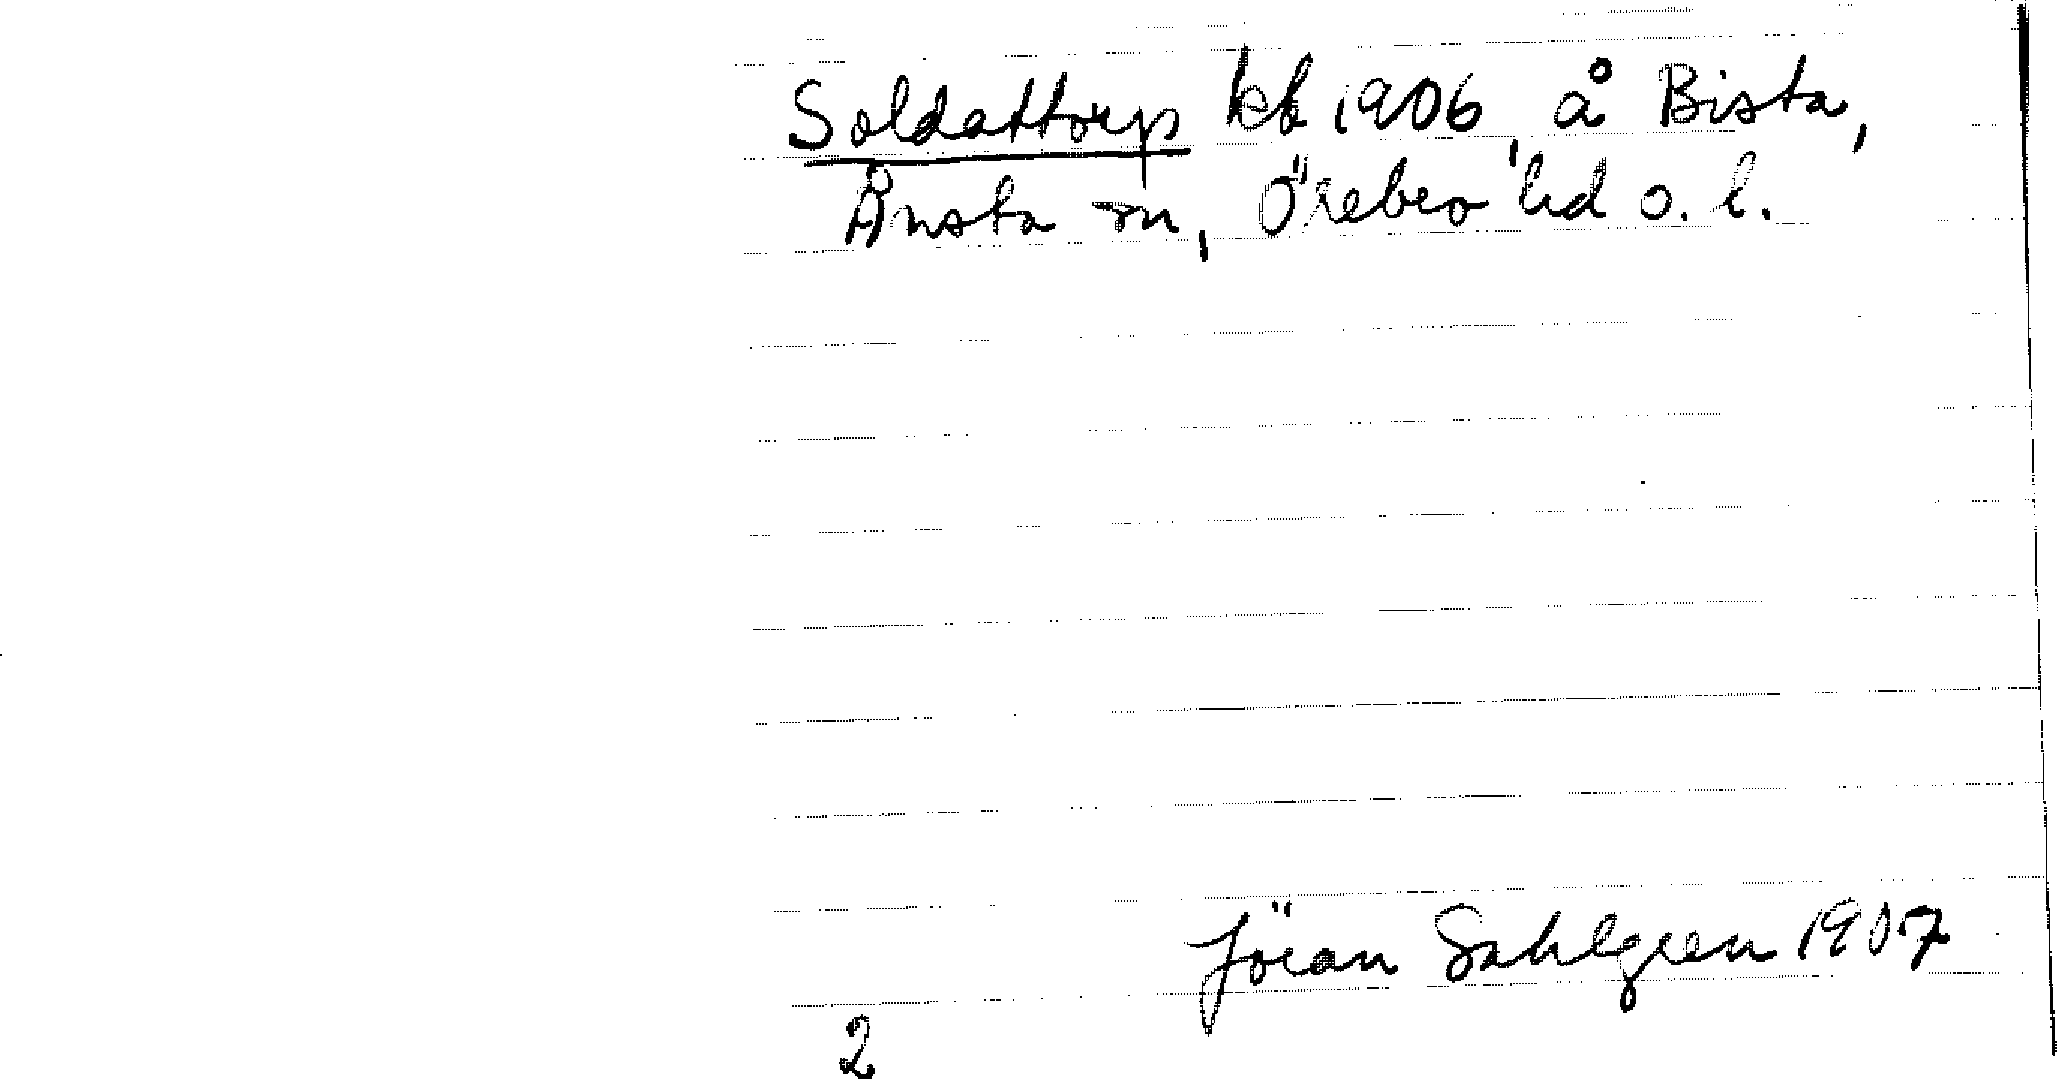 Soldattorp kb 1906, å Bista,
Ånsta sn, Örebro hd o. l.
Jöran Sahlgren 1907
2